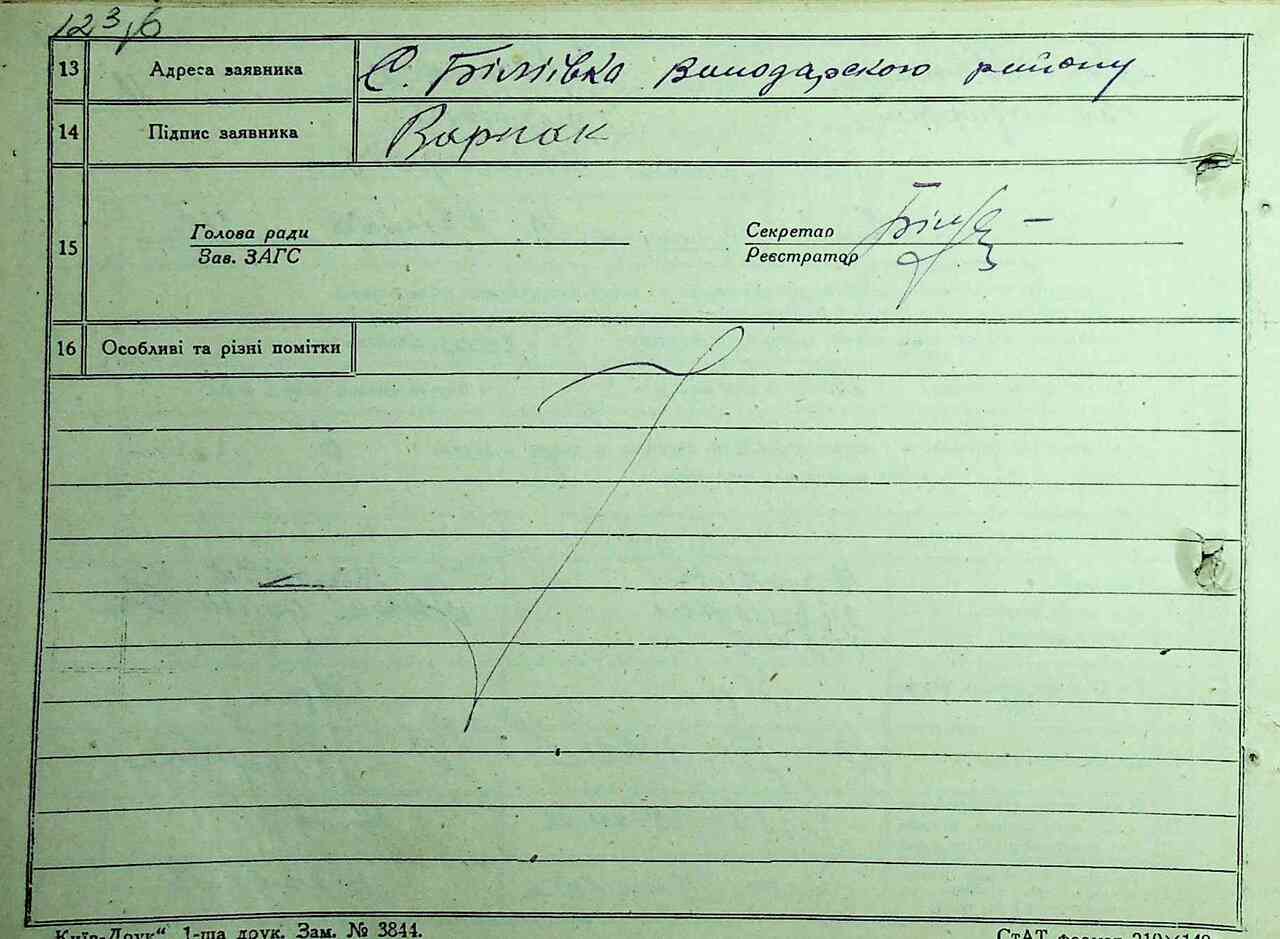 123/б
13 Адреса заявника С. Біліївка Володарского району
14 Підпис заявника Варпак
15 Голова ради Секретар
Зав. ЗАГС Реєстратор
16 Особливі та різні помітки
Київ-Друк“ 1-ша друк. Зам. № 3844. СтАТ формат 210×148